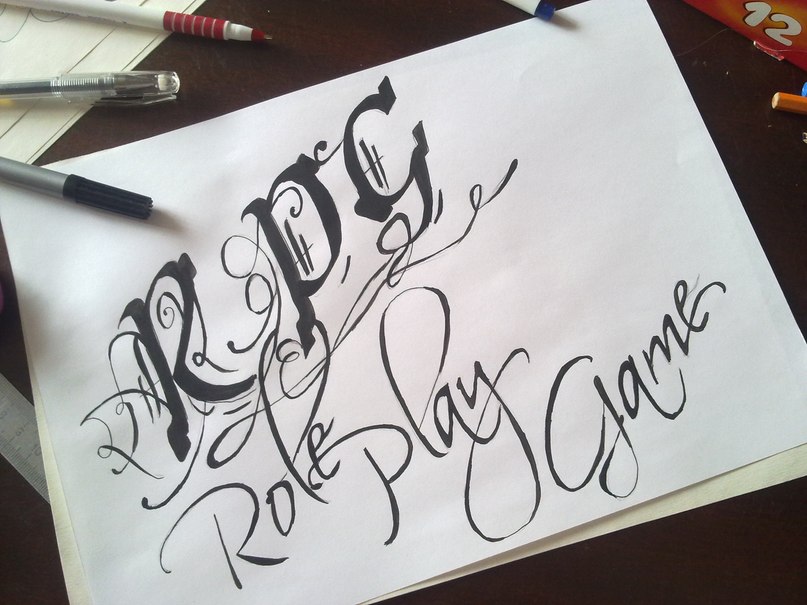 12
RPG
Role Play Game